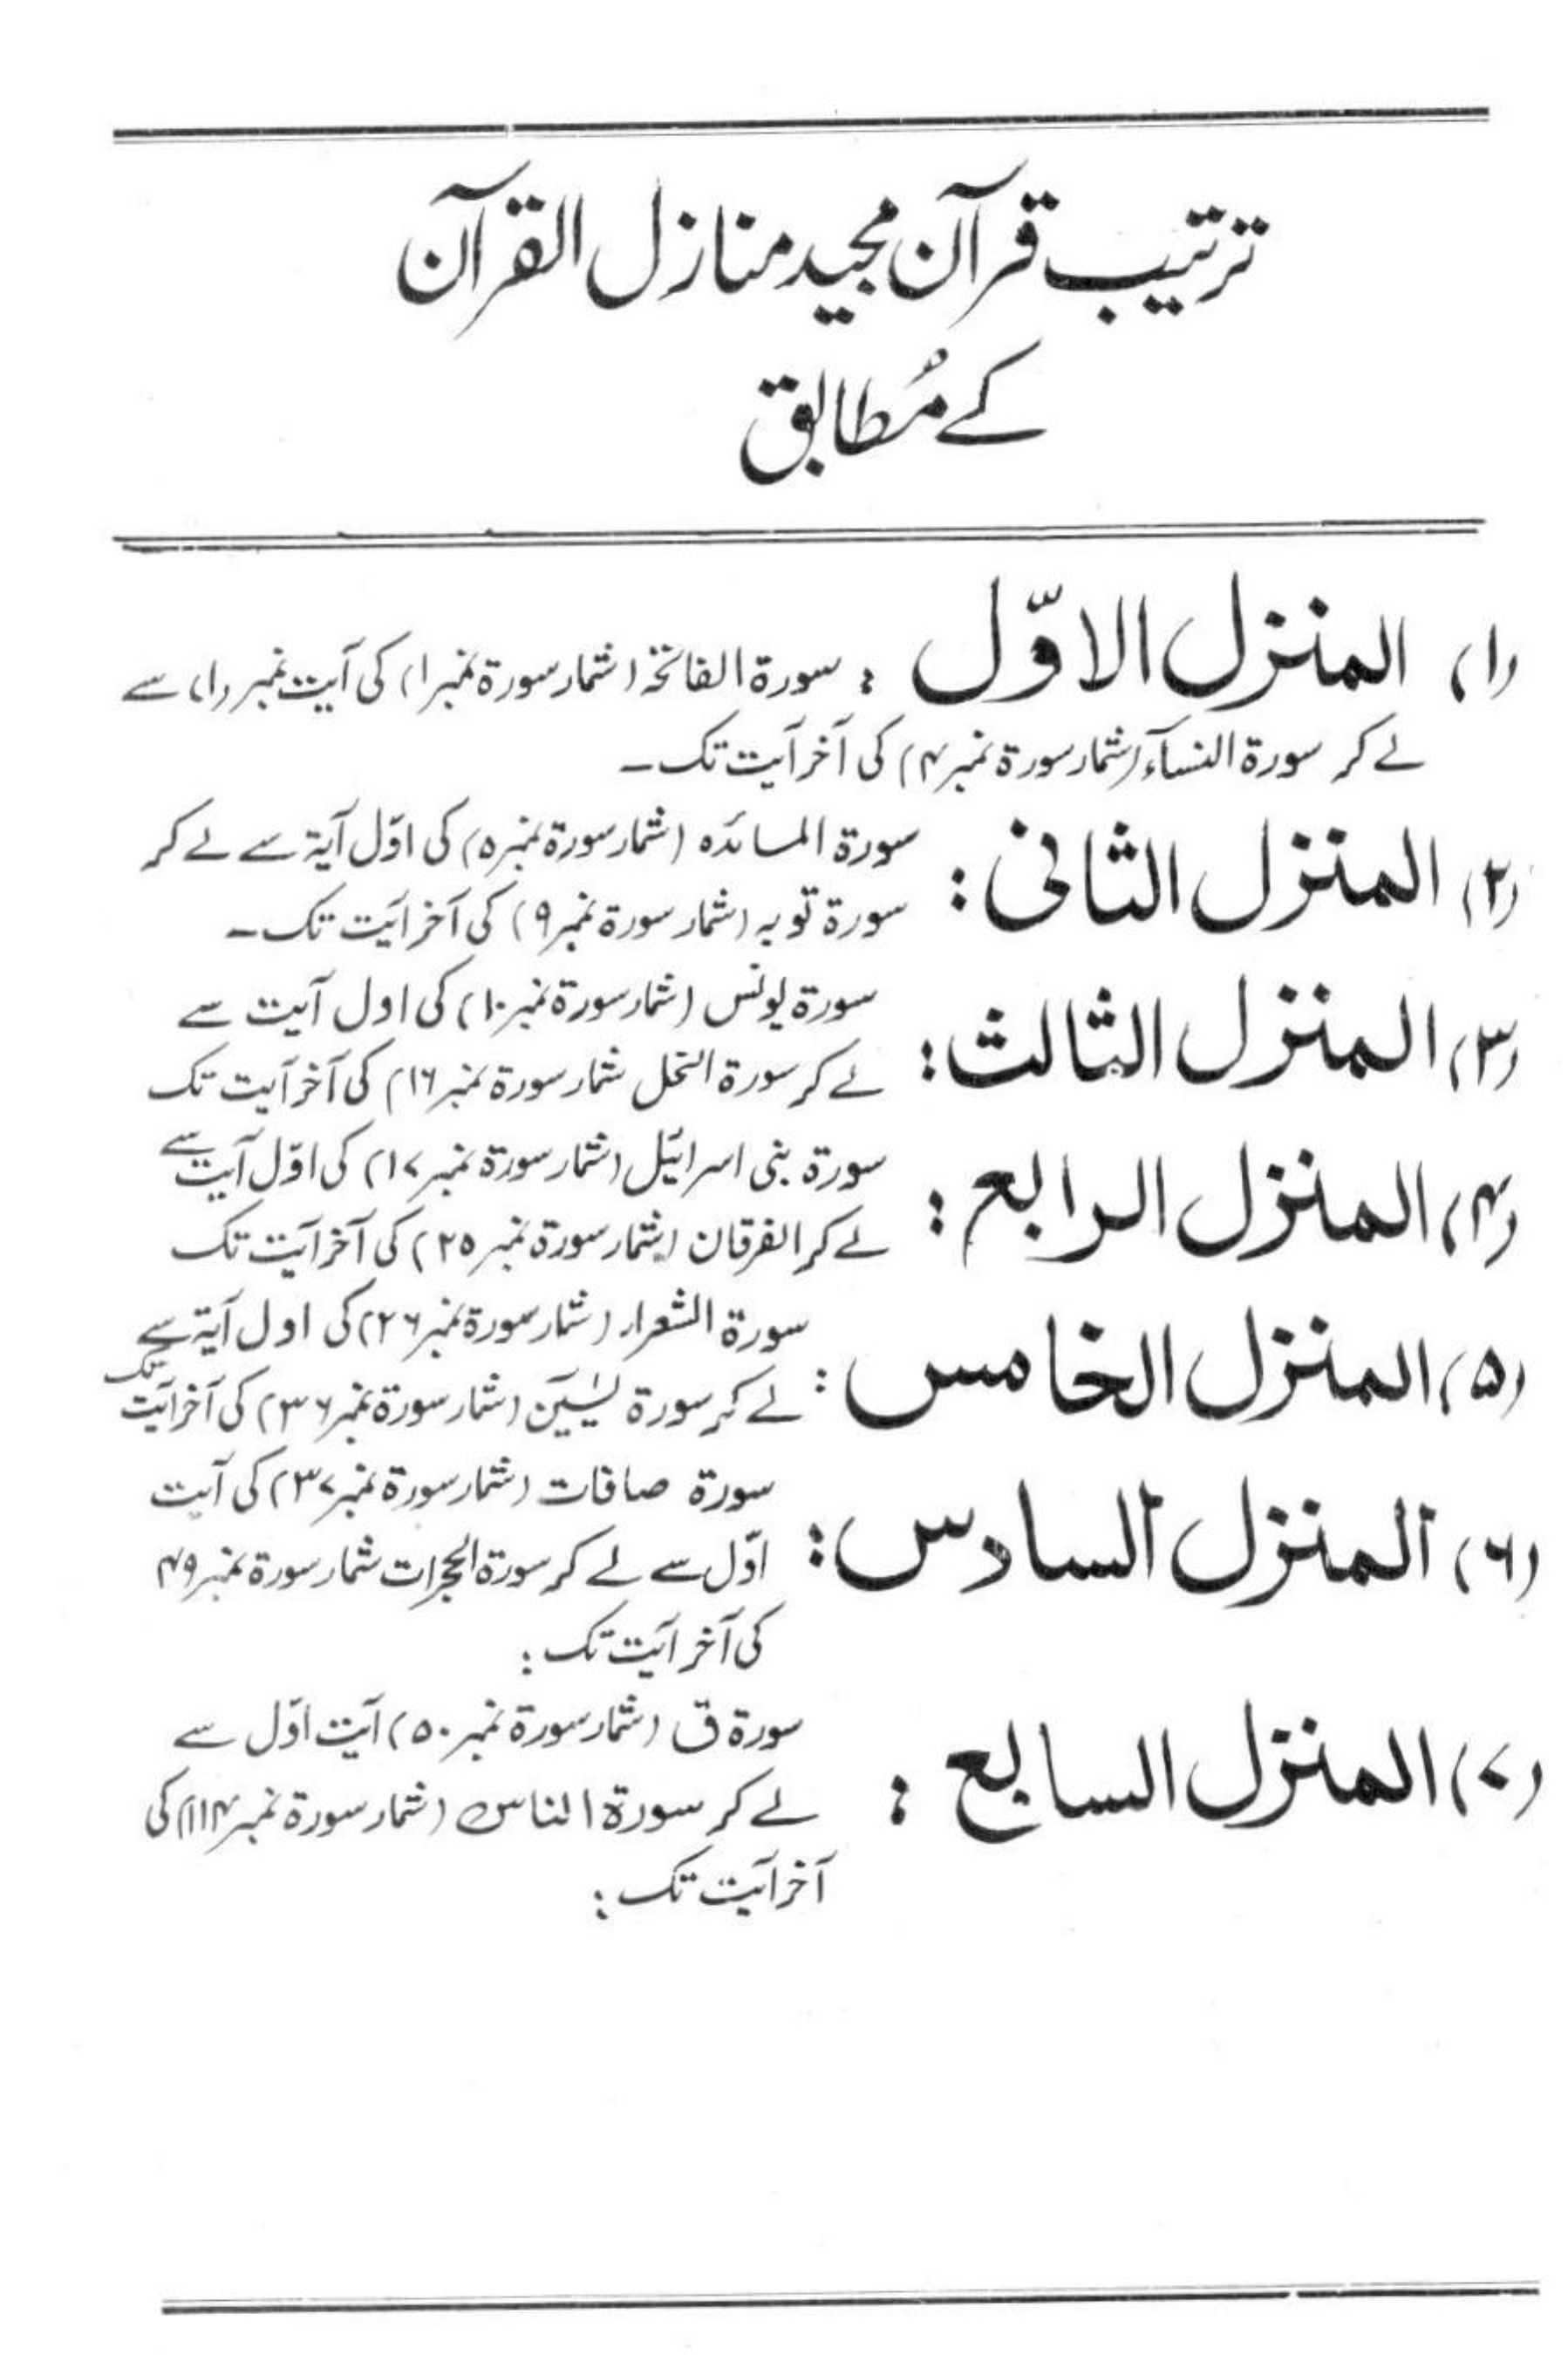 ترتیب قرآن مجید منازل القرآن
کے مُطابق
(۱) المنزل الاوّل : سورۃ الفاتحۃ (شمار سورۃ نمبر ۱) کی آیت نمبر (۱) سے
لے کر سورۃ النسآء (شمار سورۃ نمبر ۴) کی آخر آیت تک ـ
(۲) المنزل الثانی : سورۃ المائدہ (شمار سورۃ نمبر ۵) کی اوّل آیۃ سے لے کر
سورۃ توبہ (شمار سورۃ نمبر ۹) کی آخر آیت تک ـ
(۳) المنزل الثالث : سورۃ یونس (شمار سورۃ نمبر ۱۰) کی اول آیت سے
لے کر سورۃ النحل شمار سورۃ نمبر ۱۶) کی آخر آیت تک
(۴) المنزل الرابع : سورۃ بنی اسرائیل (شمار سورۃ نمبر ۱۷) کی اوّل آیت سے
لے کر الفرقان (شمار سورۃ نمبر ۲۵) کی آخر آیت تک
(۵) المنزل الخامس : سورۃ الشعراء (شمار سورۃ نمبر ۲۶) کی اول آیۃ سے
لے کر سورۃ یٰسٓیٓن (شمار سورۃ نمبر ۳۶) کی آخر آیت تک
(۶) المنزل السادس : سورۃ صافات (شمار سورۃ نمبر ۳۷) کی آیت
اوّل سے لے کر سورۃ الحجرات شمار سورۃ نمبر ۴۹
کی آخر آیت تک :
(۷) المنزل السابع : سورۃ ق (شمار سورۃ نمبر ۵۰) آیت اوّل سے
لے کر سورۃ الناس (شمار سورۃ نمبر ۱۱۴) کی
آخر آیت تک :